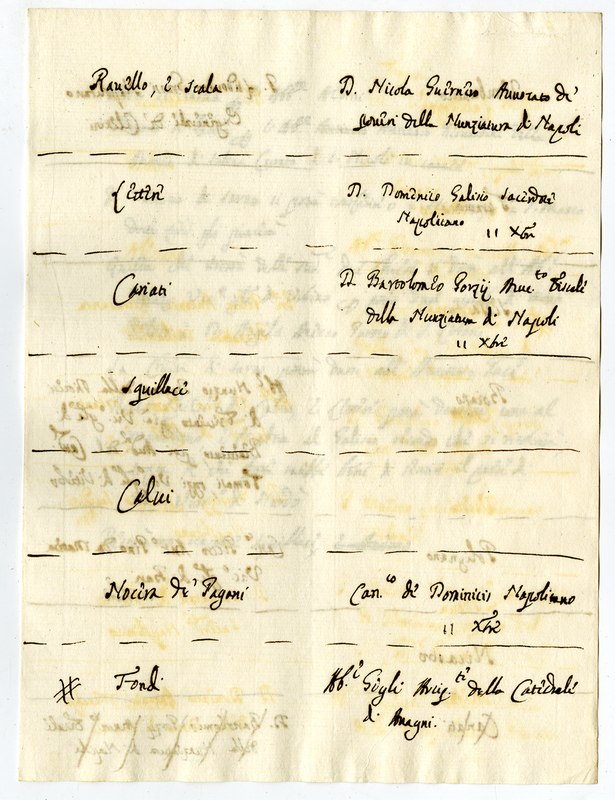 Ravello, e scala
D. Nicola Guerrero Avvocato de'
poveri della Nunziatura di Napoli
Lettere
D. Domenico Galisio Sacerdote
Napolitano
11 Xbre
Cariati
D. Bartolomeo Gorzij Avv.to Fiscale
della Nunziatura di Napoli
11 Xbre
Squillaci
Calvi
Nocera de' Pagani
Can.co de Dominicis Napolitano
11 Xbre
# Fondi
Abb.e Gigli della Catedrale
di Anagni.